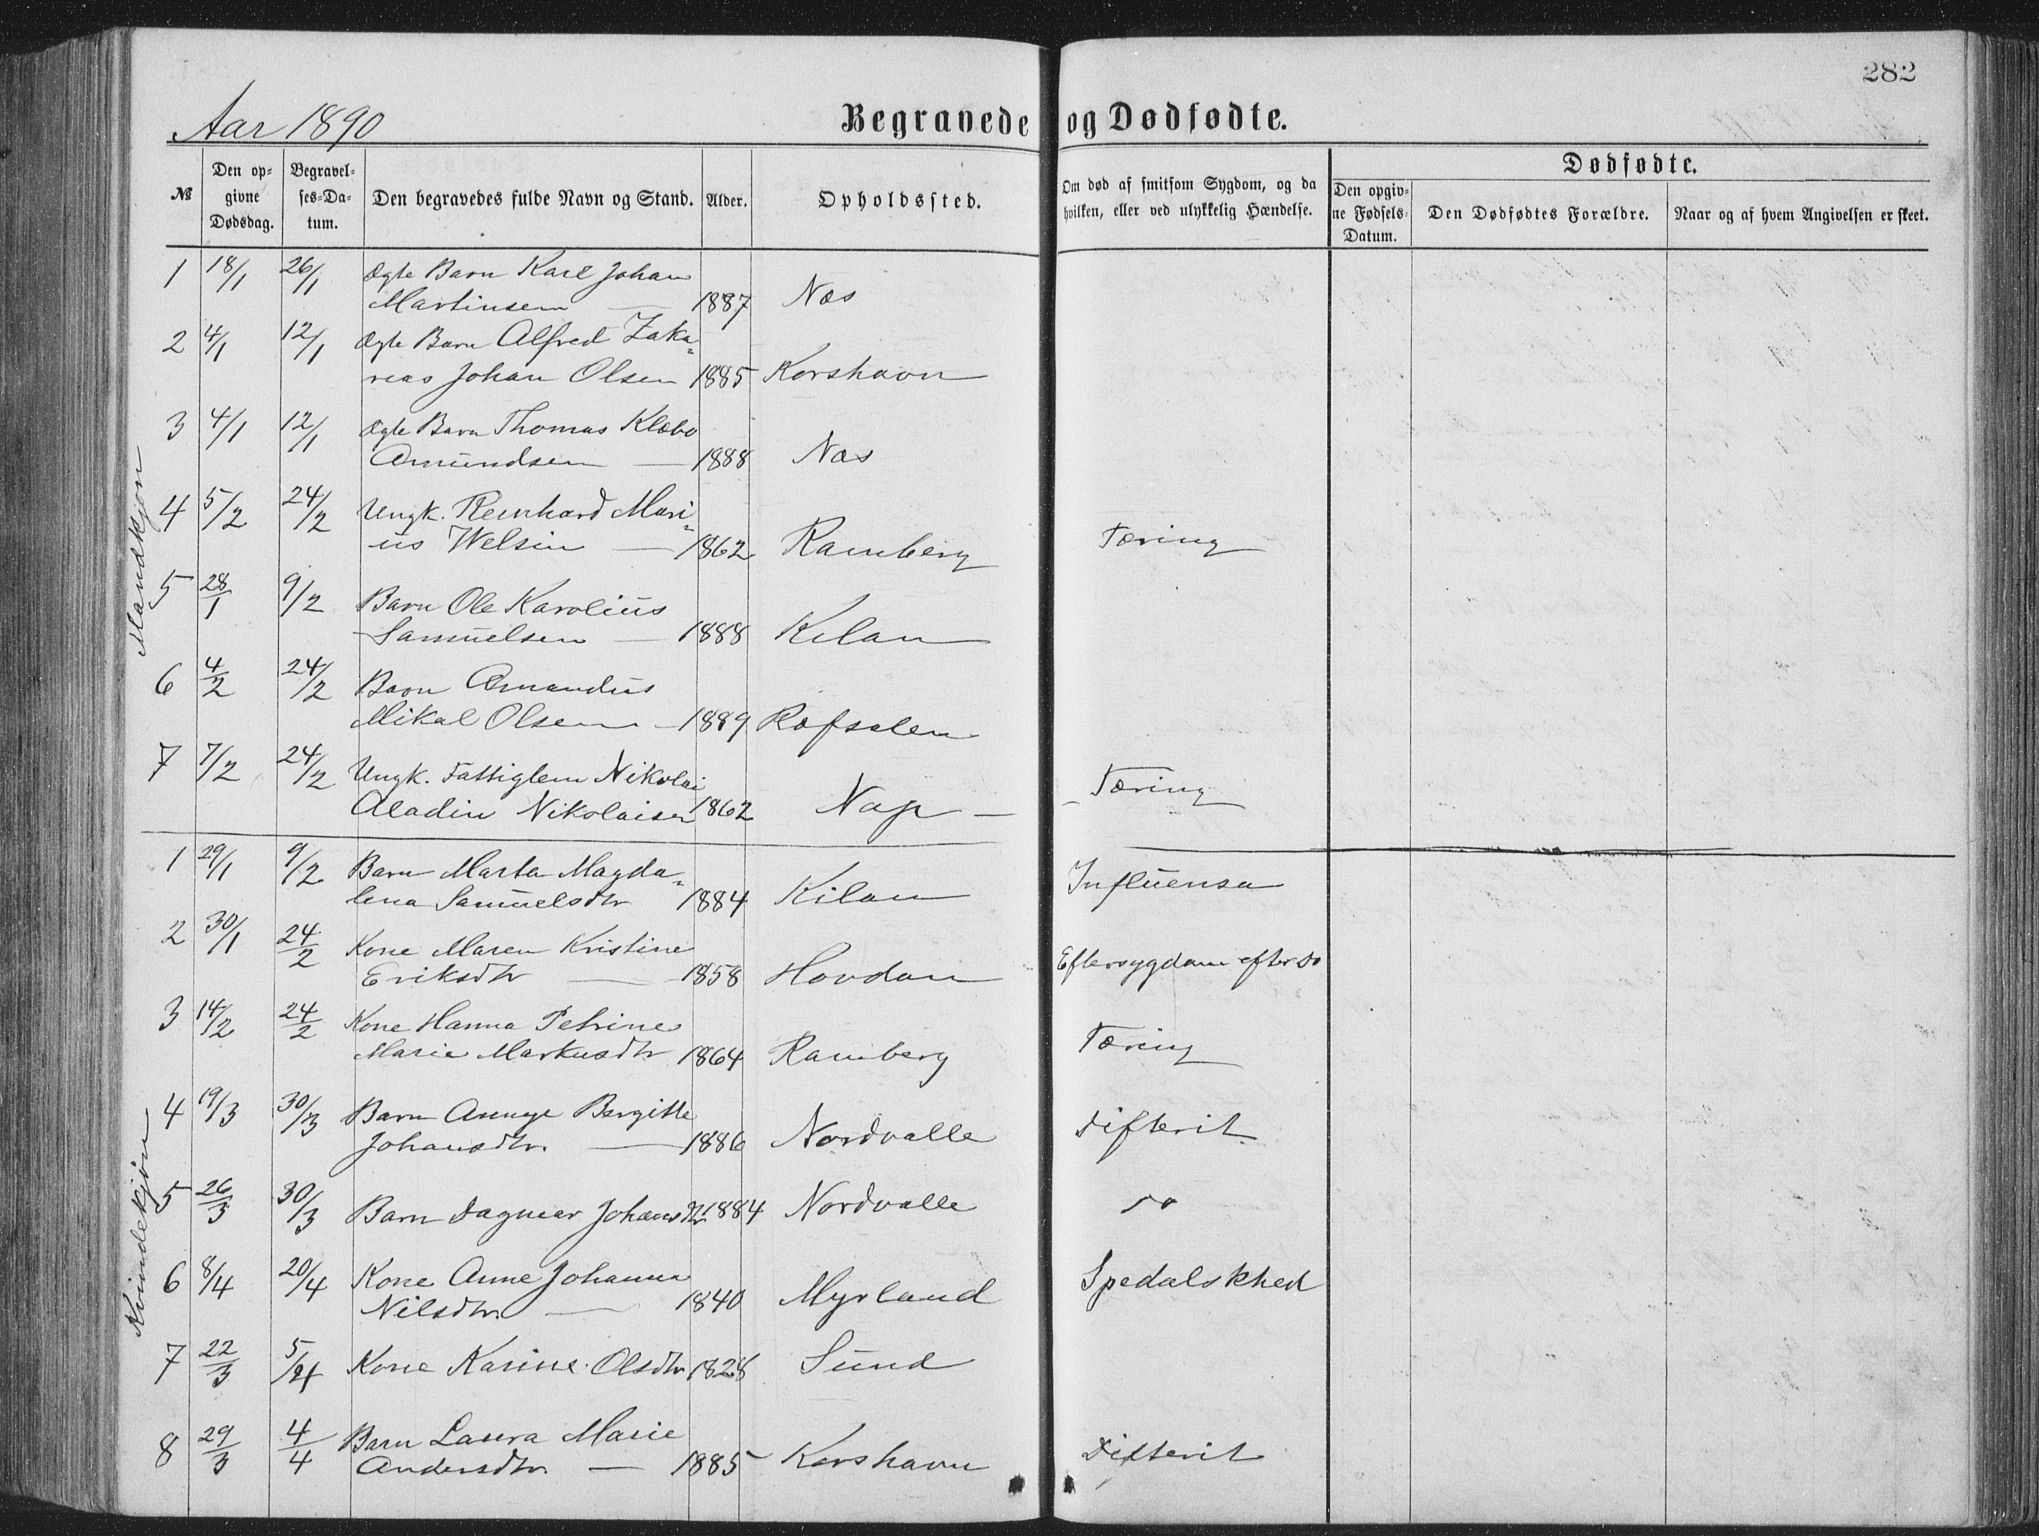 282
Aar 1890
Begravede og Dødfødte.
№
Den opgivne Dødsdag.
Begravelses-Datum.
Den begravedes fulde Navn og Stand.
Alder.
Opholdssted.
Om død af smitsom Sygdom, og da hvilken, eller ved ulykkelig Hændelse.
Dødfødte.
Den opgivne Fødsels-Datum.
Den Dødfødtes Forældre.
Naar og af hvem Angivelsen er skeet.
Mandkjøn
1 18/1 26/1 Ægte Barn Karl Johan
Martinsen — 1887 Næs
2 4/1 12/1 Ægte Barn Alfred Zaka-
rias Johan Olsen 1885 Korshavn
3 4/1 12/1 Ægte Barn Thomas Klæbo
Amundsen — 1888 Næs
4 5/2 24/2 Ungk. Reinhard Mari-
us Welsin — 1862 Ramberg Tæring
5 28/1 9/2 Barn Ole Karolius
Samuelsen — 1888 Kilan
6 4/2 24/2 Barn Amandus
Mikal Olsen — 1889 Ræfsalen
7 7/2 24/2 Ungk. Fattiglem Nikolai
Aladin Nikolaisen 1862 Nap — Tæring
Kvindekjøn
1 29/1 9/2 Barn Marta Magda-
lena Samuelsdtr 1884 Kilan Influensa
2 30/1 24/2 Kone Maren Kristine
Eriksdtr — 1858 Hovdan Eftersygdom efter do
3 14/2 24/2 Kone Hanna Petrine
Marie Markusdtr 1864 Ramberg Tæring
4 19/3 30/3 Barn Aunge Bergitte
Johansdtr. — 1886 Nordvalle Difterit
5 26/3 30/3 Barn Dagmar Johansdtr 1884 Nordvalle do
6 8/4 20/4 Kone Anne Johanna
Nilsdtr. — 1840 Myrland Spedalskhed
7 22/3 5/4 Kone Karine Olsdtr 1828 Sund
8 29/3 4/4 Barn Laura Marie
Andersdtr — 1885 Korshavn Difterit